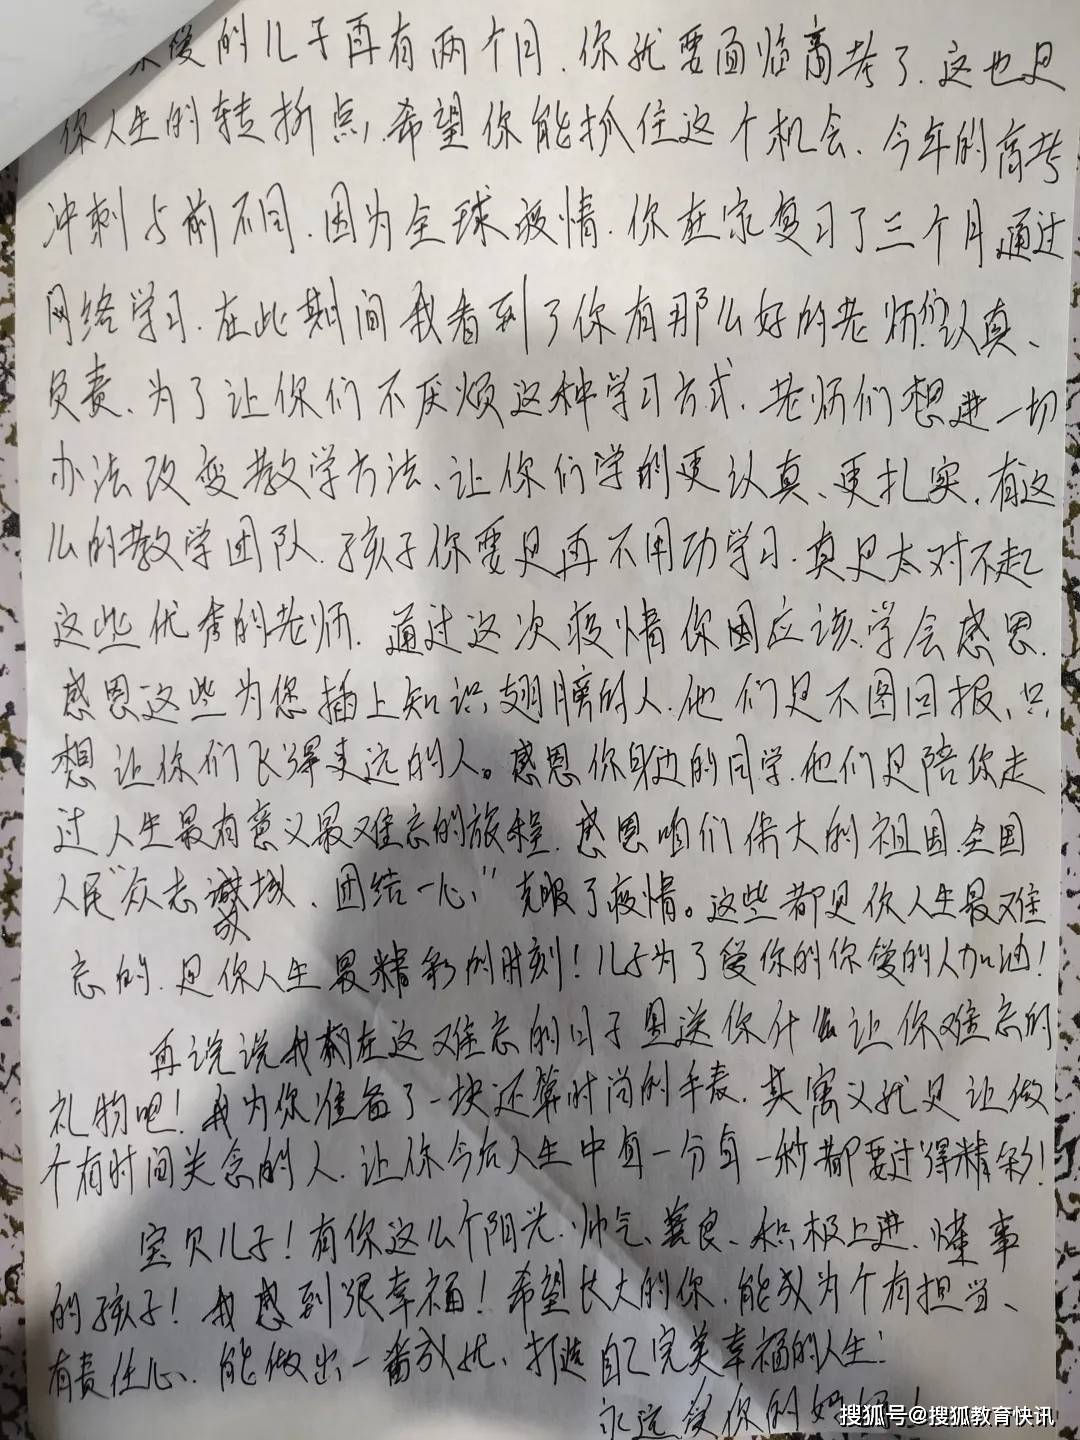 爱的儿子再有两个月.你就要面临高考了.这也是
你人生的转折点,希望你能抓住这个机会、今年的高考
冲刺与前不同.因为全球疫情.你在家复习了三个月通过
网络学习.在此期间我看到了你有那么好的老师们认真、
负责、为了让你们不厌烦这种学习方式.老师们想进一切
办法改变教学方法、让你们学的更认真、更扎实.有这
么的教学团队.孩子你要是再不用功学习.真是太对不起
这些优秀的老师.通过这次疫情你应该学会感恩.
感恩这些为您插上知识翅膀的人.他们是不图回报、只
想让你们飞得更远的人。感恩你身边的同学.他们是陪你走
过人生最有意义最难忘的旅程.感恩咱们伟大的祖国.全国
人民"众志成城、团结一心、"克服了疫情。这些都是你人生最难
忘的.是你人生最精彩的时刻!儿子为了爱你的你爱的人加油!
再说说我在这难忘的日子里送你什么让你难忘的
礼物吧!我为你准备了一块还算时尚的手表.其寓义就是让做
个有时间关念的人.让你今后人生中每一分每一秒都要过得精彩!
宝贝儿子!有你这么个阳光.帅气、善良、积极上进.懂事
的孩子!我感到很幸福!希望长大的你.能成为个有担当、
有责任心、能做出一番成就、打造自己完美幸福的人生!
永远爱你的妈妈!
搜狐号@搜狐教育快讯